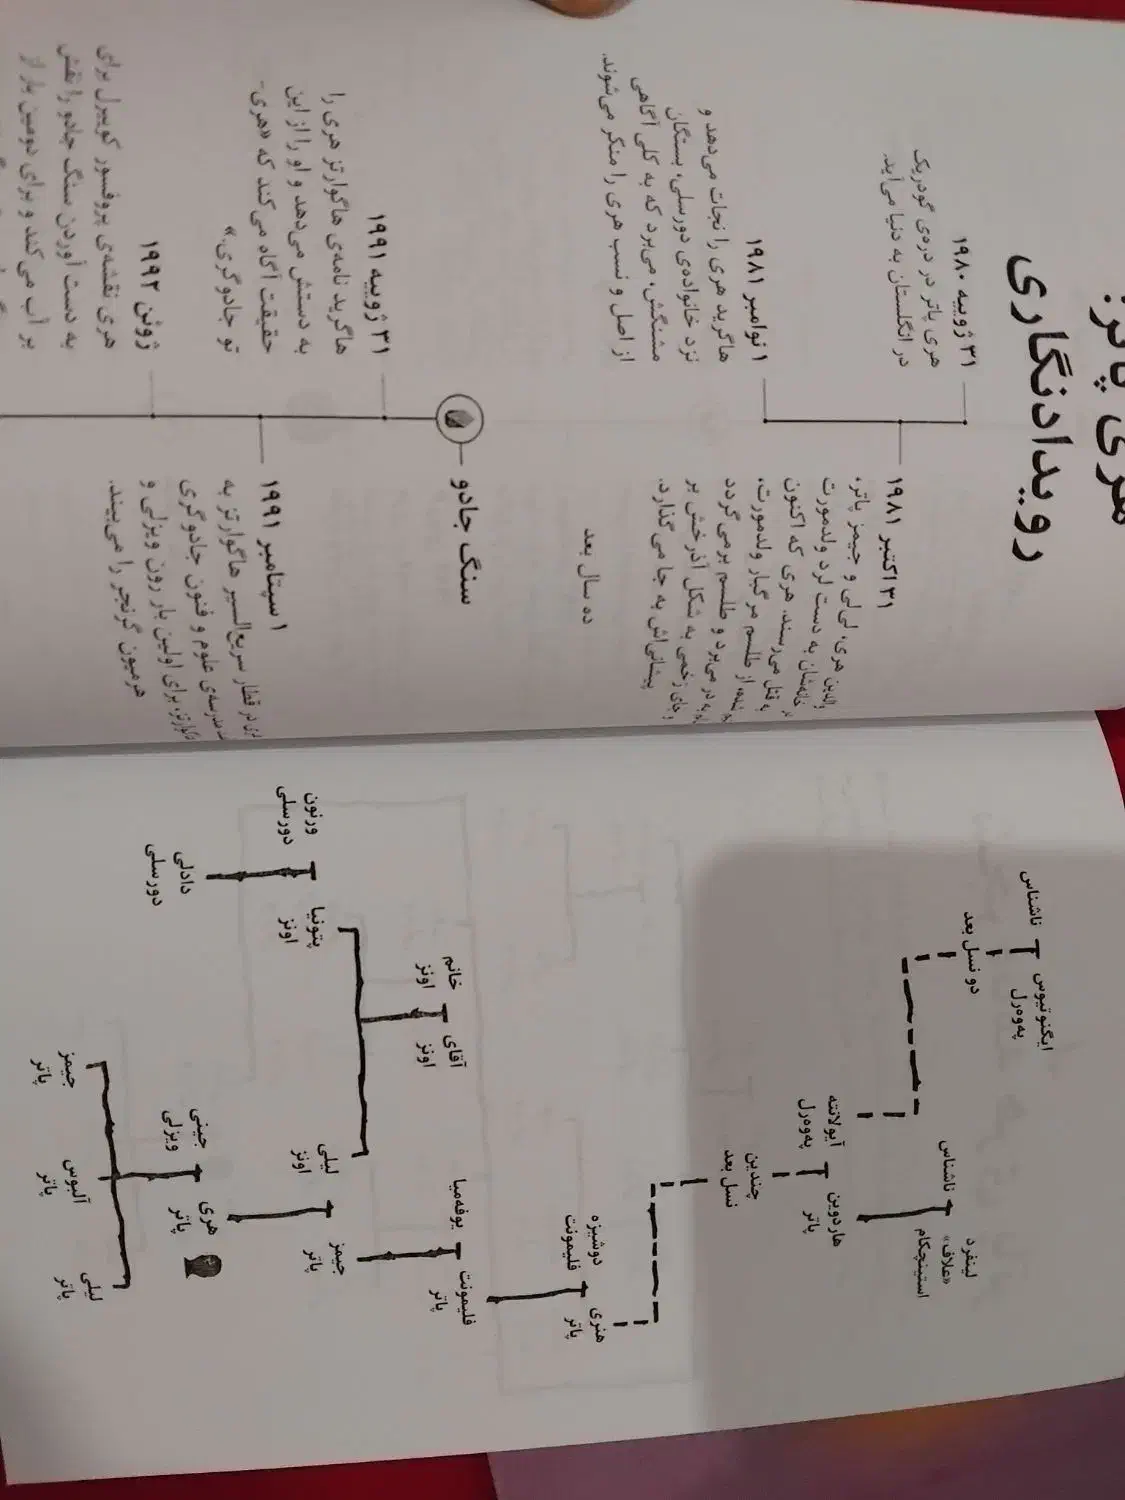 هری پاتر:
رویدادنگاری
۳۱ ژوییه ۱۹۸۰
هری پاتر در دره‌ی گودریک
در انگلستان به دنیا می‌آید.
۳۱ اکتبر ۱۹۸۱
والدین هری، لی‌لی و جیمز پاتر،
خانه‌شان به دست لرد ولدمورت
به قتل می‌رسند. هری که اکنون
از طلسم مرگبار ولدمورت،
به در می‌برد و طلسم برمی‌گردد
و جای زخمی به شکل آذرخش بر
پیشانی‌اش به جا می‌گذارد.
۱ نوامبر ۱۹۸۱
هاگرید هری را نجات می‌دهد و
نزد خانواده‌ی دورسلی، بستگان
مشنگش، می‌برد که به کلی آگاهی
از اصل و نسب هری را منکر می‌شوند.
ده سال بعد
سنگ جادو
۳۱ ژوییه ۱۹۹۱
هاگرید نامه‌ی هاگوارتز هری را
به دستش می‌دهد و او را از این
حقیقت آگاه می‌کند که «هری-
تو جادوگری.»
۱ سپتامبر ۱۹۹۱
در قطار سریع‌السیر هاگوارتز به
مدرسه‌ی علوم و فنون جادوگری
هاگوارتز، برای اولین بار رون ویزلی و
هرمیون گرنجر را می‌بیند.
ژوئن ۱۹۹۲
هری نقشه‌ی پروفسور کوییرل برای
به دست آوردن سنگ جادو را نقش
بر آب می‌کند و برای دومین بار از
ناشناس
ایگنوتیوس
په‌وه‌رل
دو نسل بعد
ناشناس
لینفرد
«علاف»
استینچکام
آیولانته
په‌وه‌رل
هاردوین
پاتر
چندین
نسل بعد
دوشیزه
فلیمونت
هنری
پاتر
یوفه‌میا
فلیمونت
پاتر
خانم
اونز
آقای
اونز
ورنون
دورسلی
پتونیا
اونز
لیلی
اونز
جیمز
پاتر
دادلی
دورسلی
جینی
ویزلی
هری
پاتر
جیمز
پاتر
آلبوس
پاتر
لیلی
پاتر